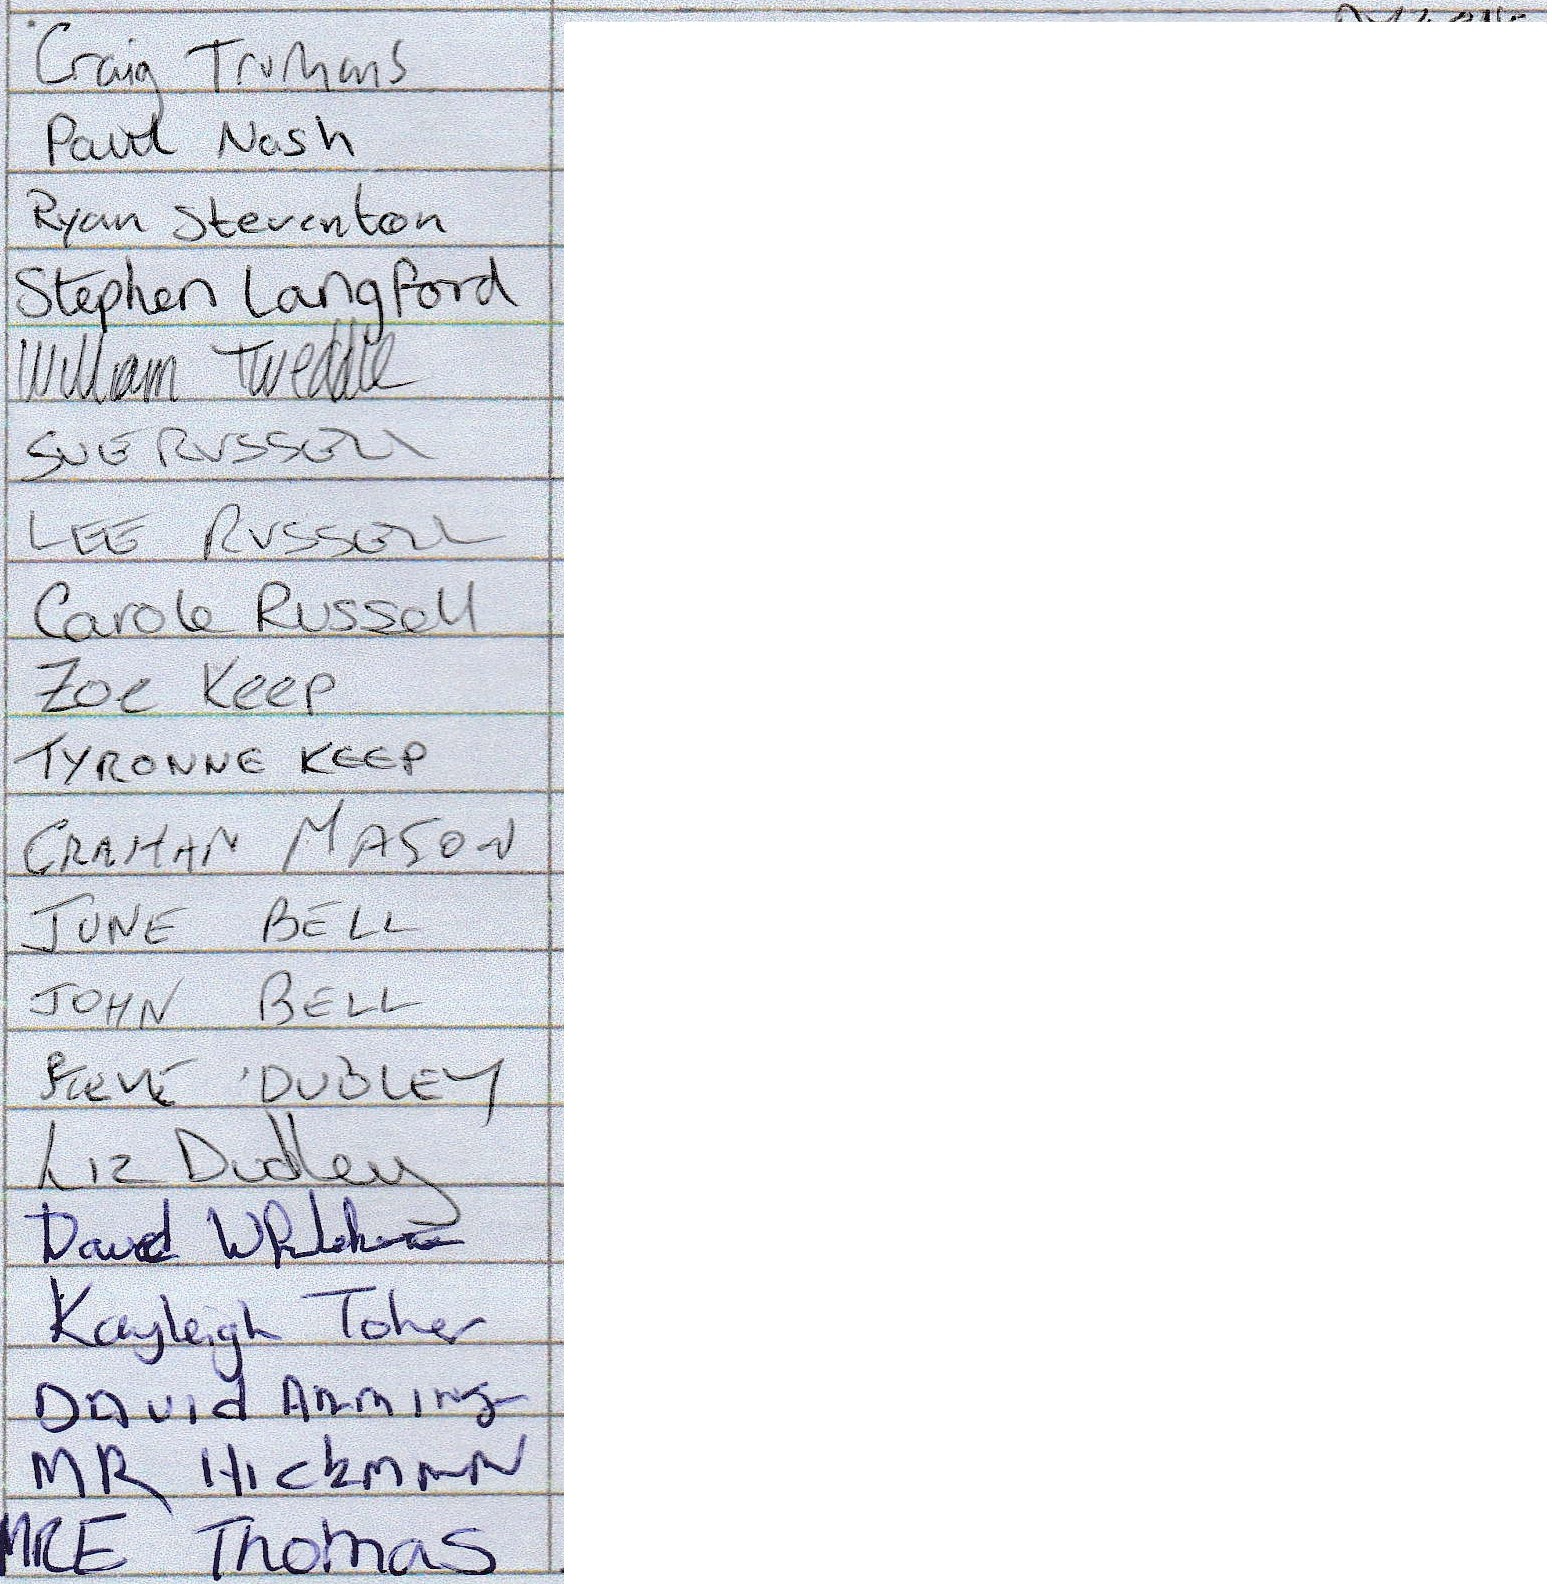 Craig Trumans
Paul Nash
Ryan Steventon
Stephen Langford
William Tweddle
SUE RUSSELL
LEE RUSSELL
Carole Russell
Zoe Keep
TYRONNE KEEP
GRAHAM MASON
JUNE BELL
JOHN BELL
STEVE DUDLEY
Liz Dudley
David
Kayleigh Toher
DAVID
MR HICKMAN
MR E Thomas